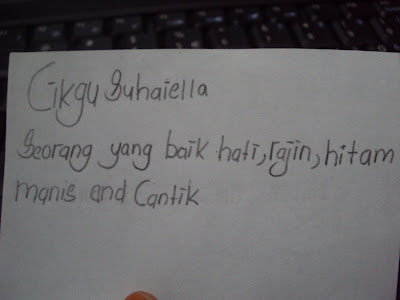 Cikgu Suhaiella
Seorang yang baik hati, rajin, hitam
manis and Cantik